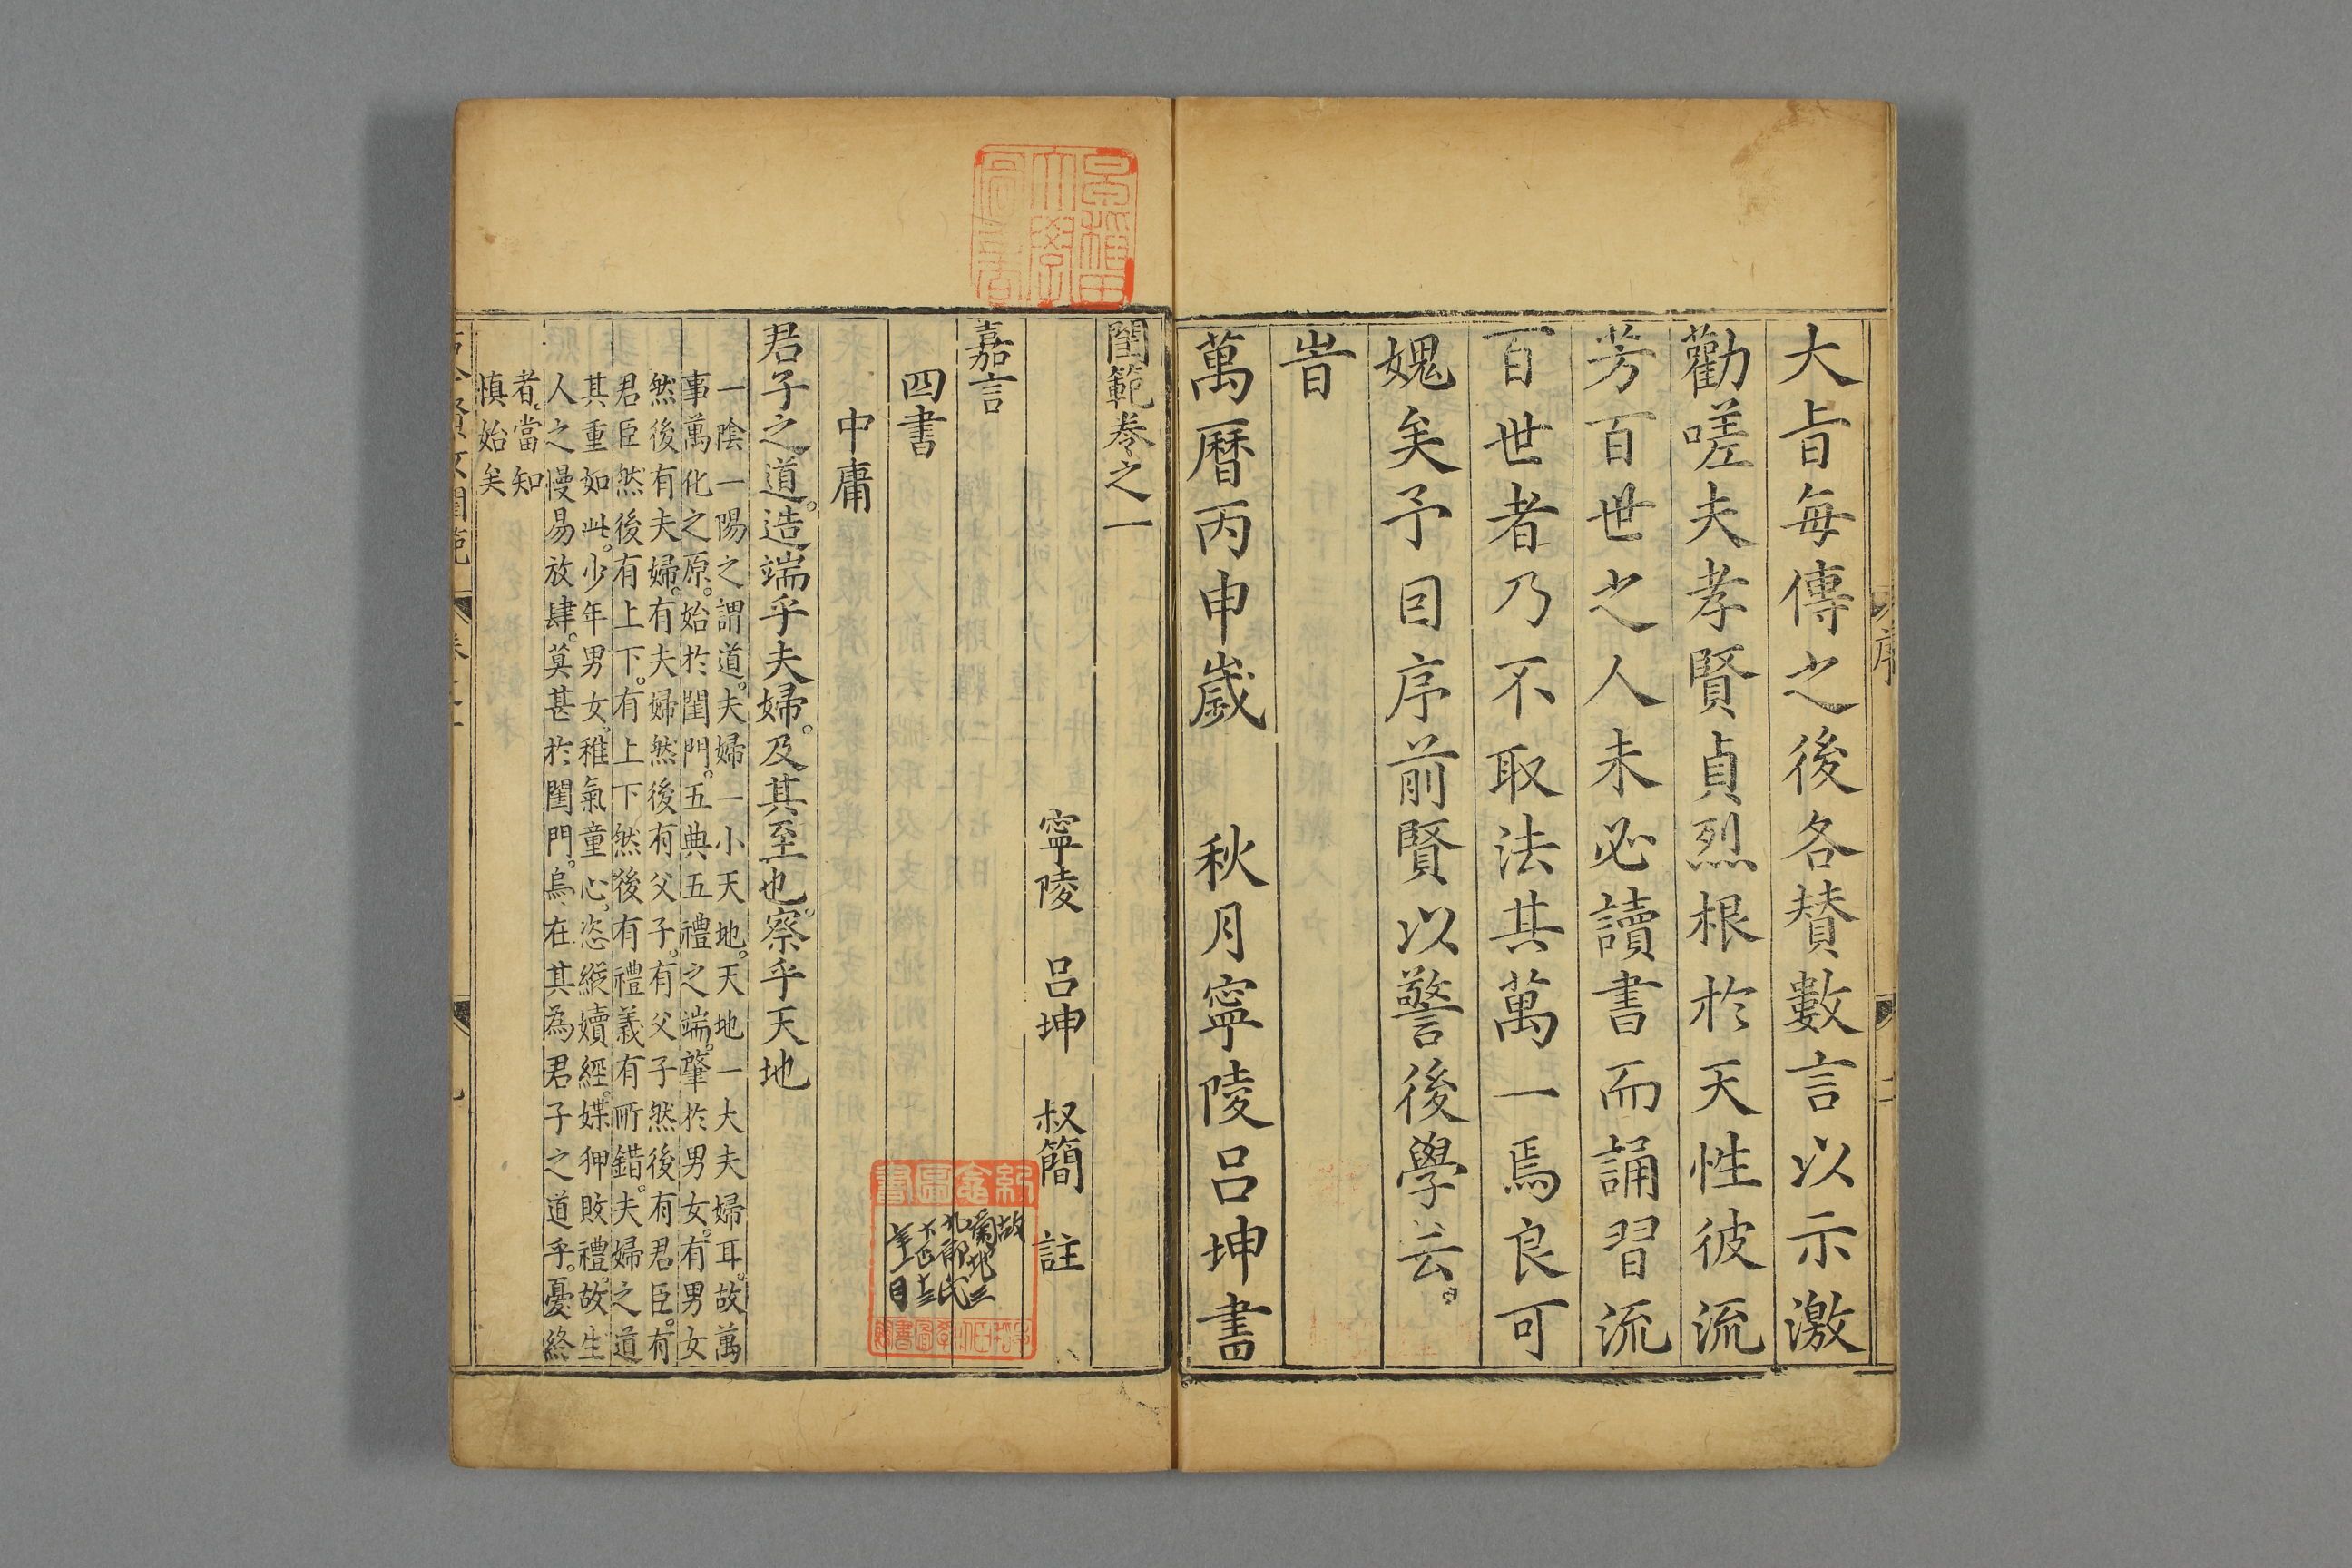 大㫖每傳之後各賛數言以示激
勸嗟夫孝賢貞烈根於天性彼流
芳百世之人未必讀書而誦習流
百世者乃不取法其萬一焉良可
媿矣予因序前賢以警後學云
旹
萬曆丙申歲　秋月寧陵呂坤書
序
二
早稲田大學圖書
閨範卷之一
寧陵　呂坤　叔簡　註
嘉言
四書
中庸
君子之道。造端乎夫婦。及其至也。察乎天地
一陰一陽之謂道。夫婦一小天地。天地一大夫婦耳。故萬
事萬化之原。始於閨門。五典五禮之端。肇於男女。有男女
然後有夫婦。有夫婦然後有父子。有父子然後有君臣。有
君臣然後有上下。有上下然後有禮義有所錯。夫婦之道
其重如此。少年男女。稚氣童心。恣縱瀆經。媟狎敗禮。故生
人之慢易放肆。莫甚於閨門。烏在其為君子之道乎。憂終
者。當知
慎始矣
大正十三